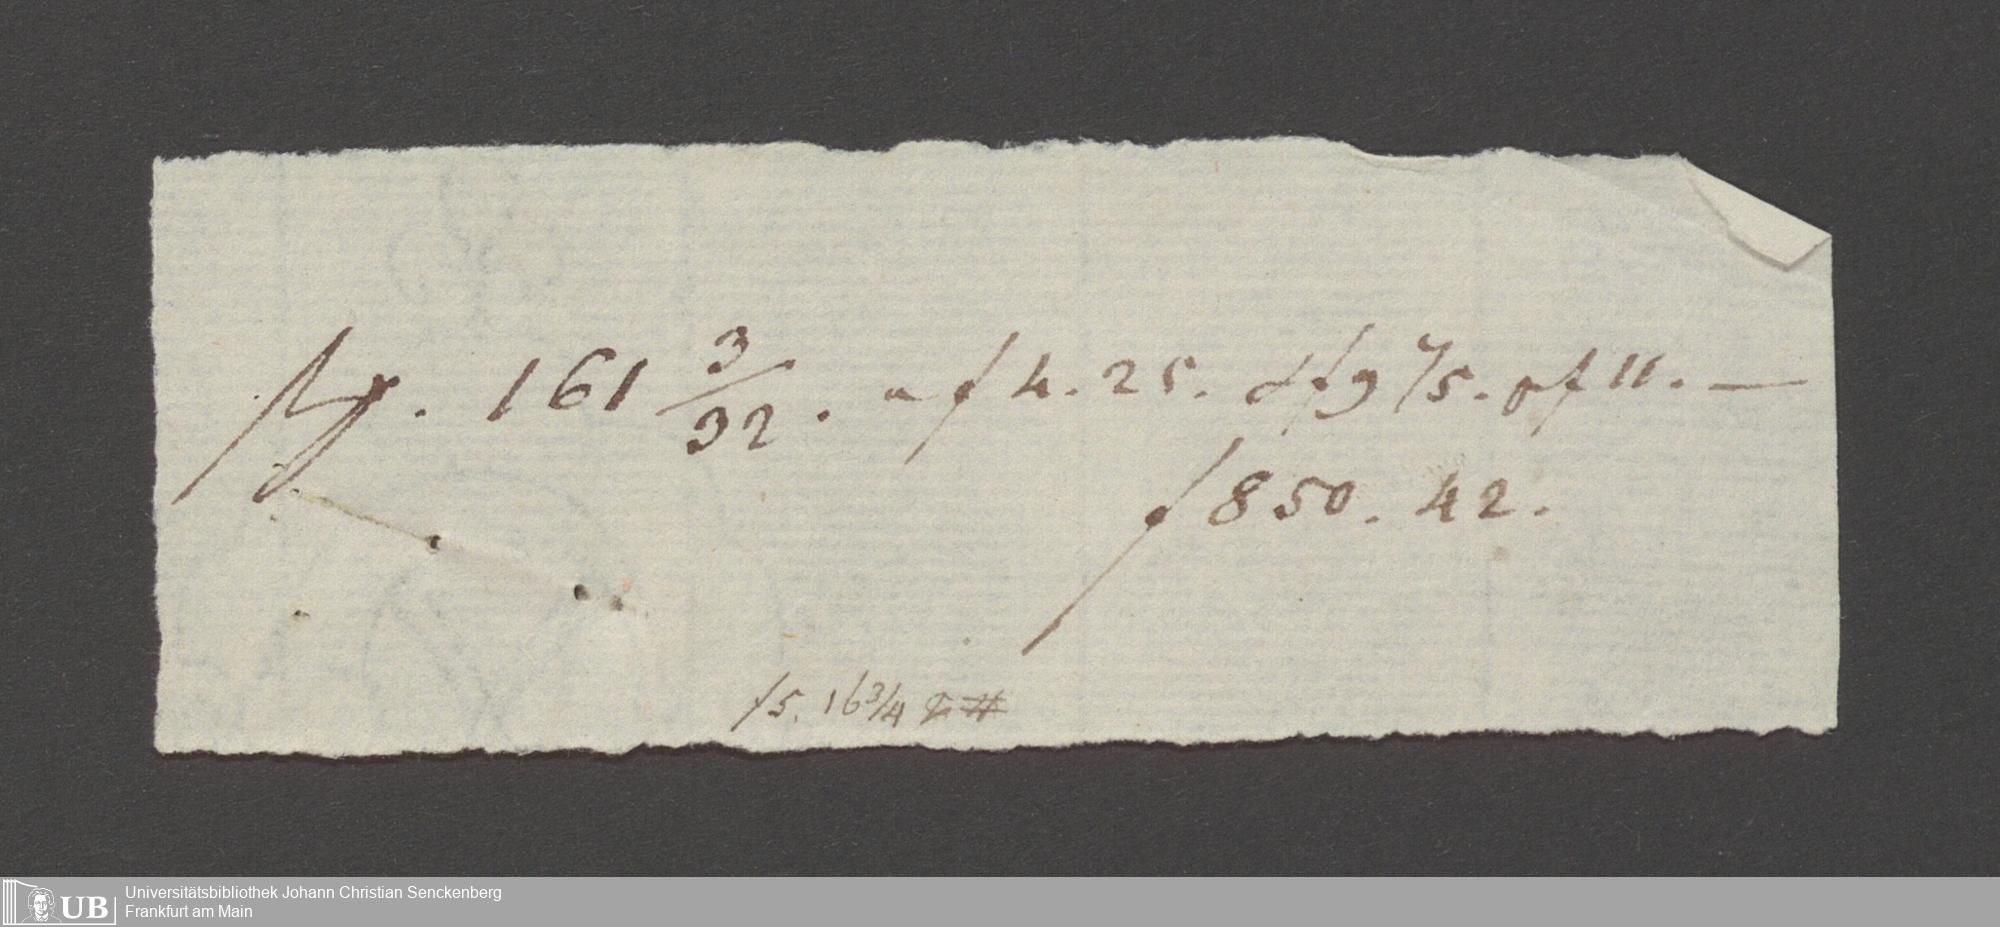 161 3/32. a f 4. 25. d f 9 4/5. of f 11. —
f 850. 42.
f 5. 16 3/4
UB Universitätsbibliothek Johann Christian Senckenberg
Frankfurt am Main